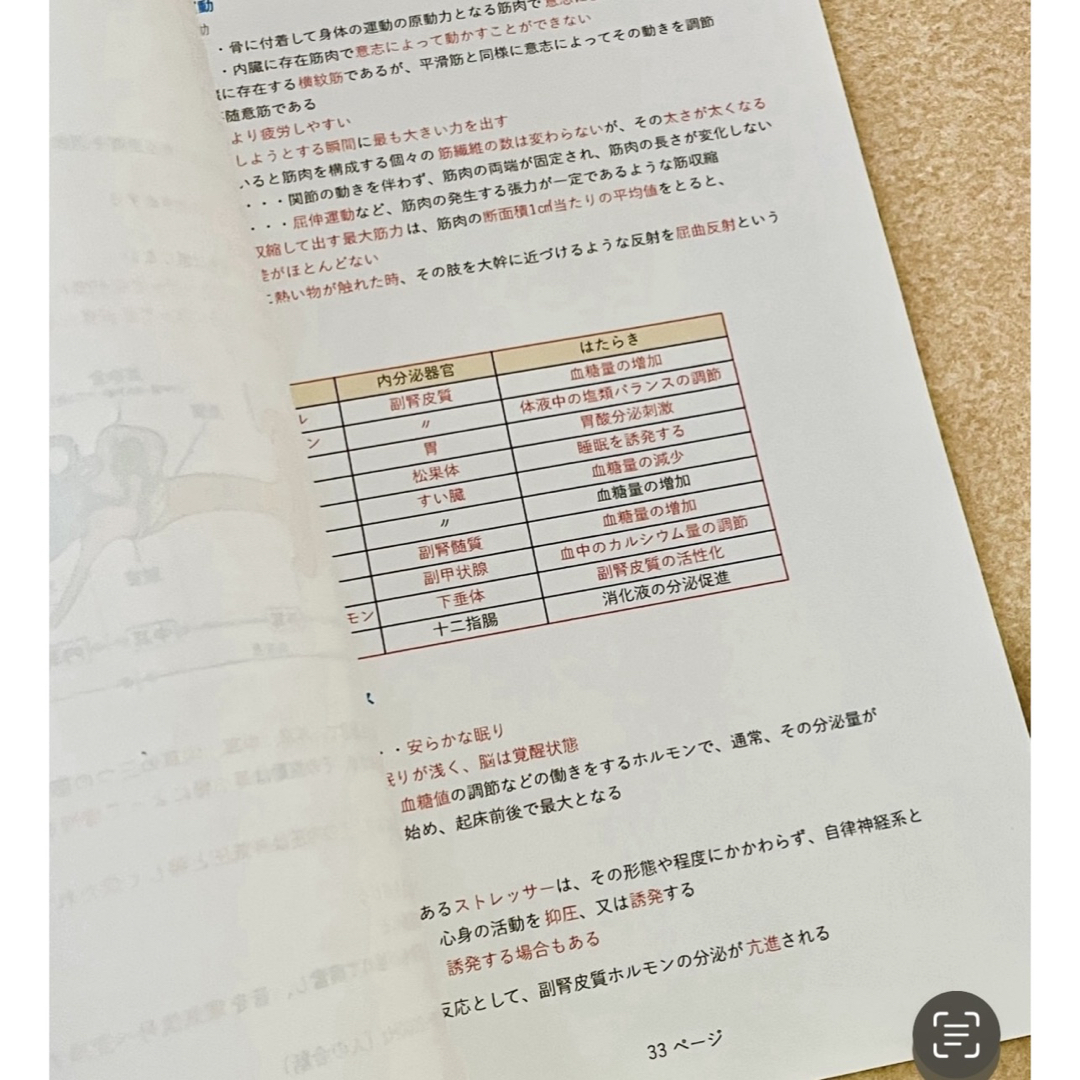 動
・骨に付着して身体の運動の原動力となる筋肉で
・内臓に存在筋肉で意志によって動かすことができない
に存在する横紋筋であるが、平滑筋と同様に意志によってその動きを調節
随意筋である
より疲労しやすい
しようとする瞬間に最も大きい力を出す
いると筋肉を構成する個々の筋繊維の数は変わらないが、その太さが太くなる
・・・関節の動きを伴わず、筋肉の両端が固定され、筋肉の長さが変化しない
・・・屈伸運動など、筋肉の発生する張力が一定であるような筋収縮
収縮して出す最大筋力は、筋肉の断面積1㎠当たりの平均値をとると、
がほとんどない
に熱い物が触れた時、その肢を大幹に近づけるような反射を屈曲反射という
内分泌器官 はたらき
ル 副腎皮質 血糖量の増加
ン 〃 体液中の塩類バランスの調節
胃 胃酸分泌刺激
松果体 睡眠を誘発する
すい臓 血糖量の減少
〃 血糖量の増加
副腎髄質 血糖量の増加
副甲状腺 血中のカルシウム量の調節
モン 下垂体 副腎皮質の活性化
十二指腸 消化液の分泌促進
・・安らかな眠り
眠りが浅く、脳は覚醒状態
血糖値の調節などの働きをするホルモンで、通常、その分泌量が
始め、起床前後で最大となる
あるストレッサーは、その形態や程度にかかわらず、自律神経系と
心身の活動を抑圧、又は誘発する
誘発する場合もある
反応として、副腎皮質ホルモンの分泌が亢進される
33 ページ